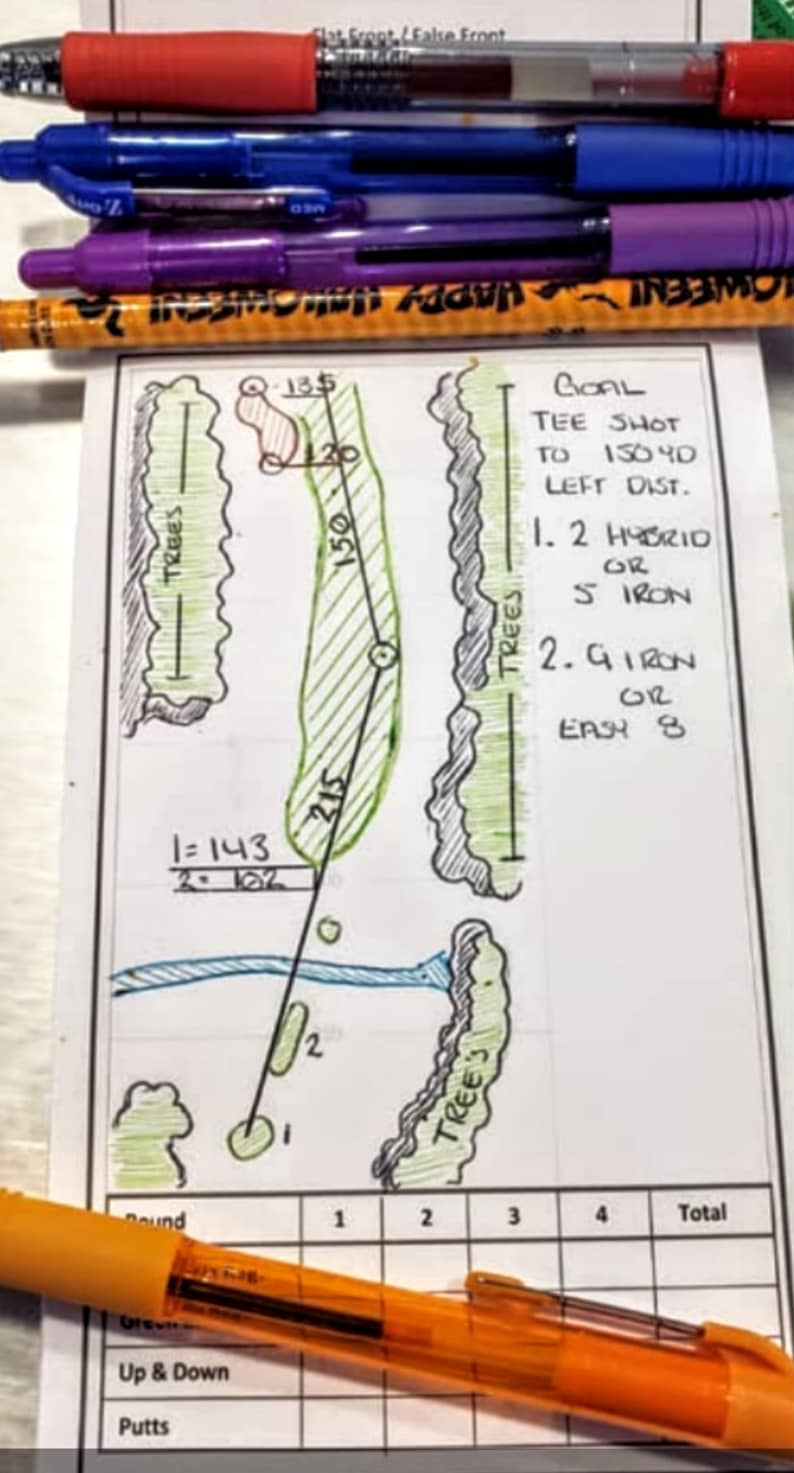 Flat Front / False Front
HAPPY HALLOWEEN!
135
120
150
TREES
TREES
215
1= 143
2= 102
2
1
TREES
GOAL
TEE SHOT
TO 150 YD
LEFT DIST.
1. 2 HYBRID
OR
5 IRON
2. 9 IRON
OR
EASY 8
Round 1 2 3 4 Total
Up & Down
Putts